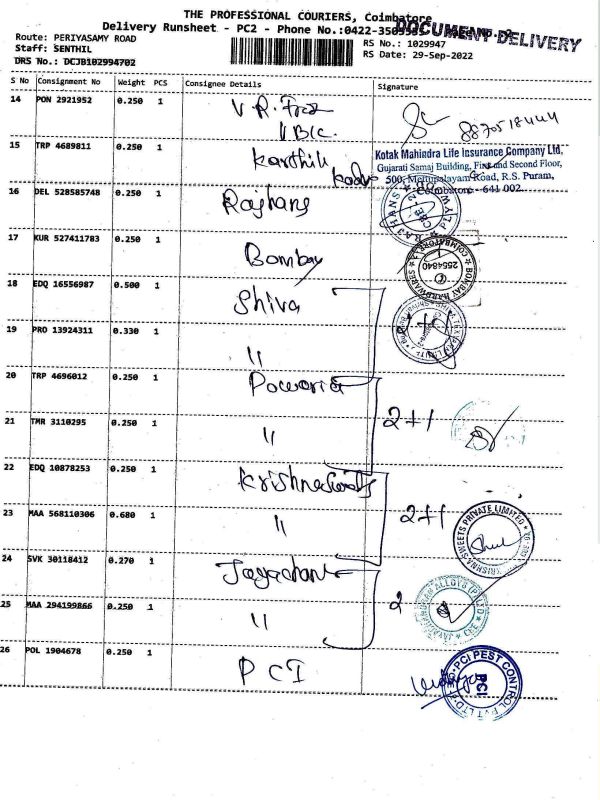 THE PROFESSIONAL COURIERS, Coimbatore
Delivery Runsheet - PC2 - Phone No.:0422-
DOCUMENT DELIVERY
Route: PERIYASAMY ROAD
RS No.: 1029947
Staff: SENTHIL
RS Date: 29-Sep-2022
DRS No.: DCJB102994702
S No Consignment No Weight PCS Consignee Details Signature
14 PON 2921952 0.250 1 V.R.
8870518444
15 TRP 4689811 0.250 1 Karthik
Kotak Mahindra Life Insurance Company Ltd,
Gujarati Samaj Building, First and Second Floor,
500, Mettupalayam Road, R.S. Puram,
Coimbatore - 641 002.
16 DEL 528585748 0.250 1 Rajhans
RAJHANS
17 KUR 527411783 0.250 1 Bombay
BOMBAY HARDWARES COIMBATORE
2554840
18 EDQ 16556987 0.500 1 Shiva
19 PRO 13924311 0.330 1 "
20 TRP 4696012 0.250 1
21 TMR 3110295 0.250 1 " 2+1
22 EDQ 10878253 0.250 1
23 MAA 568110306 0.680 1 " 2+1
KRISHNA SWEETS PRIVATE LIMITED
24 SVK 30118412 0.270 1
25 MAA 294199866 0.250 1 " 2
26 POL 1904678 0.250 1 PCI
PCI PEST CONTROL PVT LTD
PCI